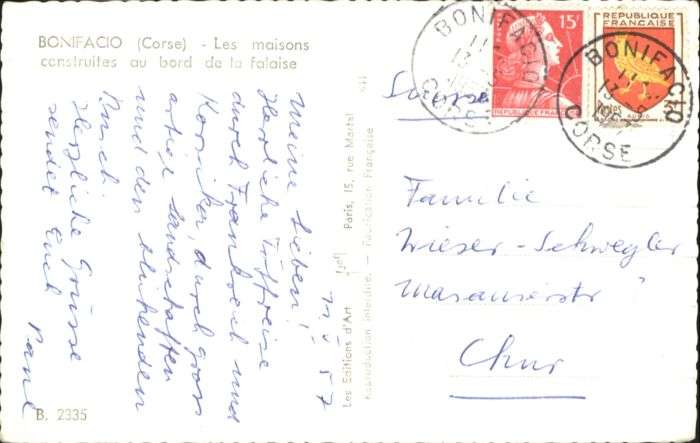 BONIFACIO (Corse) - Les maisons
construites au bord de la falaise
11. 5. 57
Meine Lieben!
Herrliche Töffreise
durch Frankreich und
Korsika, durch gross
artige Landschaften
und den blühenden
Busch.
Herzliche Grüsse
sendet Euch
Paul
B. 2335
Les Editions d'Art (jef) Paris, 15, rue Martel
Reproduction interdite. - Fabrication Française
BONIFACIO
CORSE
15F
POSTES FRANÇAISE
REPUBLIQUE
FRANÇAISE
BONIFACIO
CORSE
Suisse
Familie
Wieser-Schwegler
Masanserstr
Chur